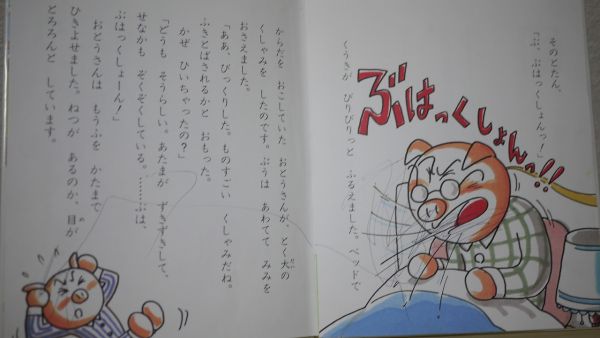 そのとたん、
「ぶ、ぶはっくしょんっ！」
ぶはっくしょんっ!!
くうきが びりびりっと ふるえました。ベッドで
からだを おこしていた おとうさんが、とく大の
くしゃみを したのです。ぶうは あわてて みみを
おさえました。
「ああ、びっくりした。ものすごい くしゃみだね。
ふきとばされるかと おもった。
かぜ ひいちゃったの？」
「どうも そうらしい。あたまが ずきずきして、
せなかも ぞくぞくしている。……ぶは、
ぶはっくしょーん！」
おとうさんは もうふを かたまで
ひきよせました。ねつが あるのか、目が
とろろんと しています。